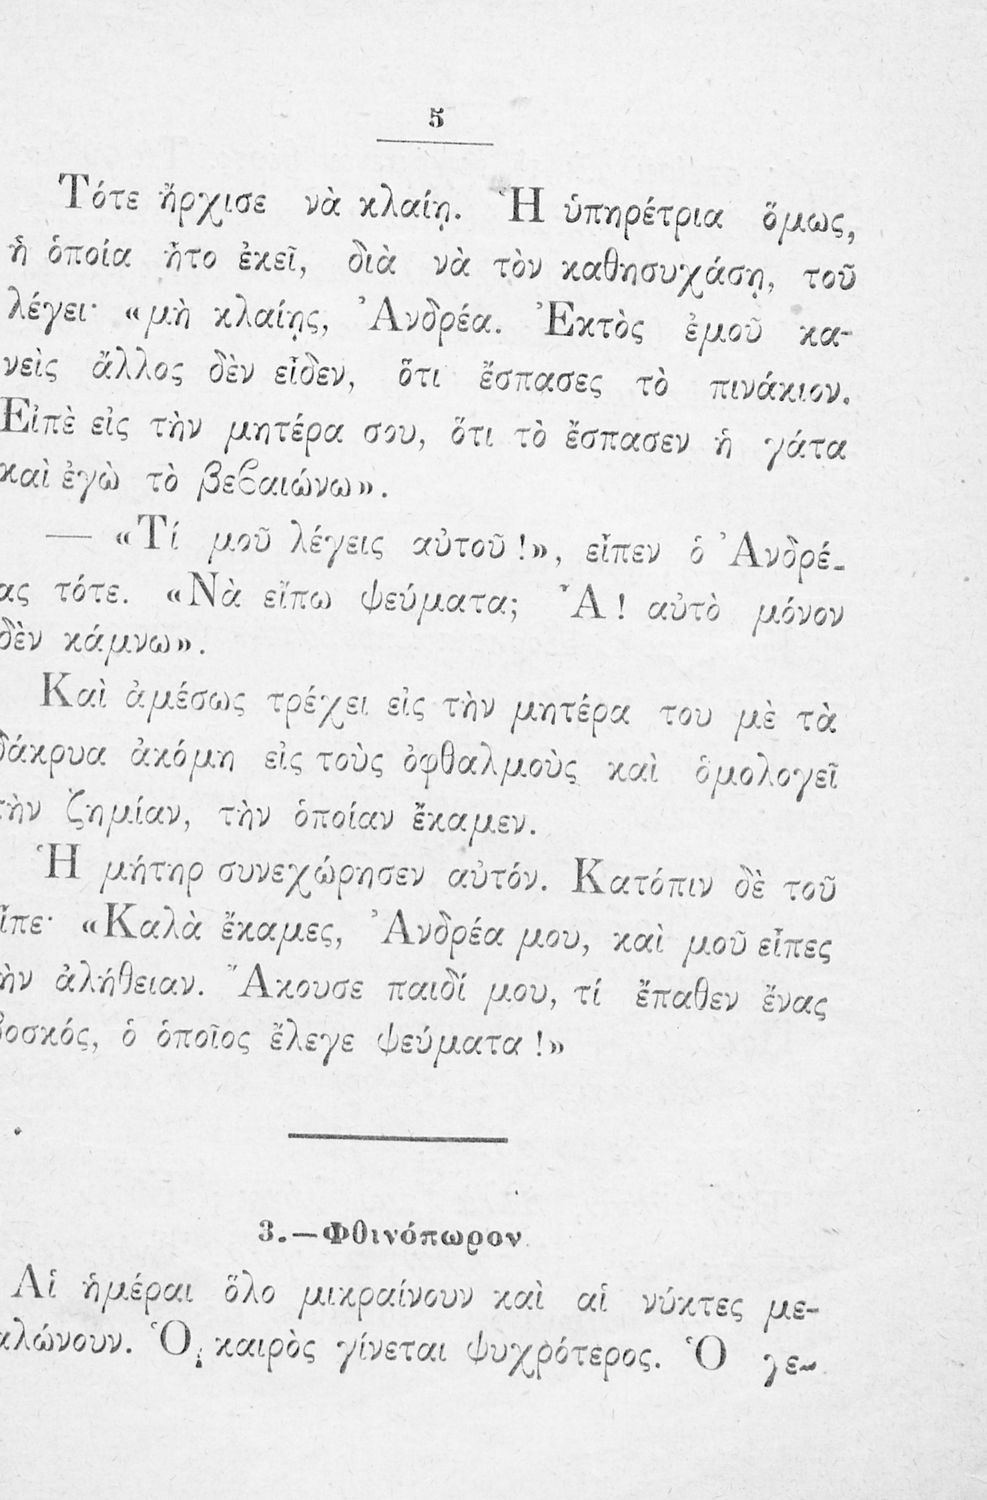 5
Τότε ἤρχισε νὰ κλαίῃ. Ἡ ὑπηρέτρια ὅμως,
ἡ ὁποία ἦτο ἐκεῖ, διὰ νὰ τὸν καθησυχάσῃ, τοῦ
λέγει· «μὴ κλαίῃς, Ἀνδρέα. Ἐκτὸς ἐμοῦ κα-
νεὶς ἄλλος δὲν εἶδεν, ὅτι ἔσπασες τὸ πινάκιον.
Εἰπὲ εἰς τὴν μητέρα σου, ὅτι τὸ ἔσπασεν ἡ γάτα
καὶ ἐγὼ τὸ βεϐαιώνω».
— «Τί μοῦ λέγεις αὐτοῦ!», εἶπεν ὁ Ἀνδρέ-
ας τότε. «Νὰ εἴπω ψεύματα; Ἆ! αὐτὸ μόνον
δὲν κάμνω».
Καὶ ἀμέσως τρέχει εἰς τὴν μητέρα του μὲ τὰ
δάκρυα ἀκόμη εἰς τοὺς ὀφθαλμοὺς καὶ ὁμολογεῖ
τὴν ζημίαν, τὴν ὁποίαν ἔκαμεν.
Ἡ μήτηρ συνεχώρησεν αὐτόν. Κατόπιν δὲ τοῦ
εἶπε· «Καλὰ ἔκαμες, Ἀνδρέα μου, καὶ μοῦ εἶπες
τὴν ἀλήθειαν. Ἄκουσε παιδί μου, τί ἔπαθεν ἕνας
βοσκός, ὁ ὁποῖος ἔλεγε ψεύματα!»
3.—Φθινόπωρον
Αἱ ἡμέραι ὅλο μικραίνουν καὶ αἱ νύκτες με-
αλώνουν. Ὁ καιρὸς γίνεται ψυχρότερος. Ὁ γε-